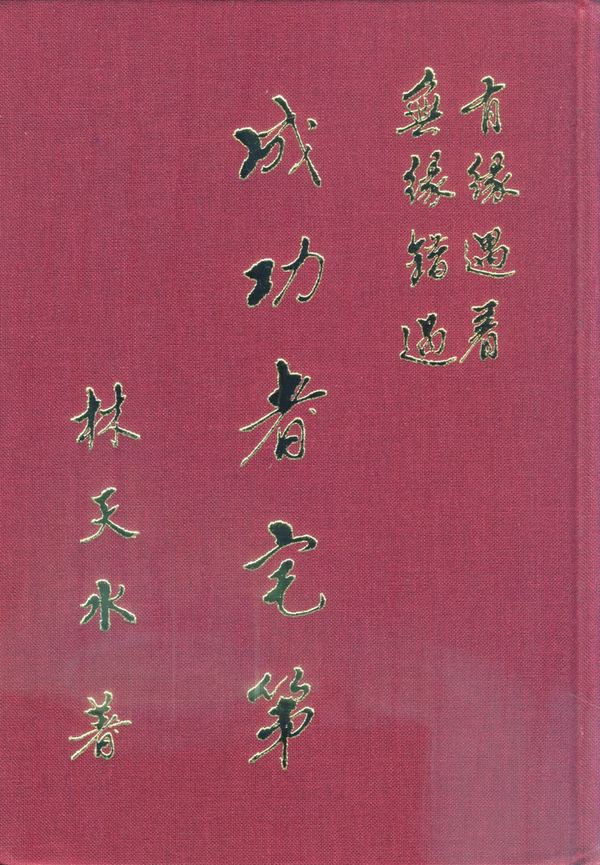 有緣遇着
無緣錯過
成功者宅第
林天水著